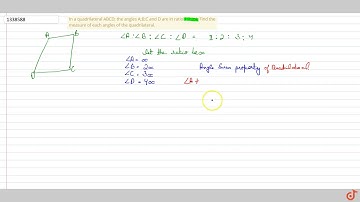 1338588
In a quadrilateral ABCD, the angles A,B,C and D are in ratio Find the
measure of each angles of the quadrilateral.
A B
D C
∠A : ∠B : ∠C : ∠D = 1 : 2 : 3 : 4
let the ratio be x
∠A = x
∠B = 2x
∠C = 3x
∠D = 4x
Angle sum property of Quadrilateral
∠A +